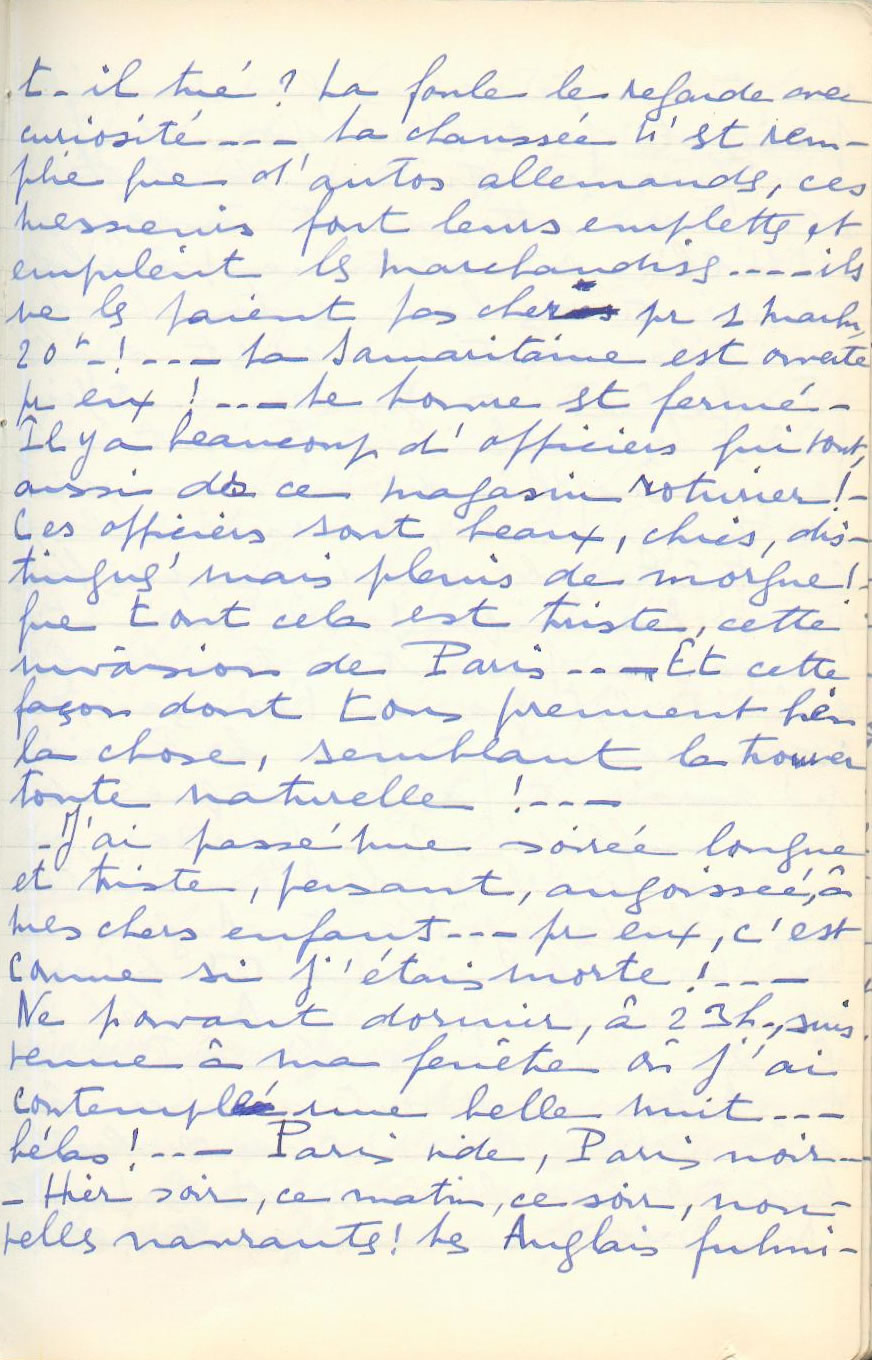 t-il tué ? La foule le regarde avec
curiosité --- La chaussée n'est rem-
plie que d'autos allemands, ces
messieurs font leurs emplettes, et
empilent les marchandises ---- ils
ne les paient pas cher pr 1 mark,
20 f - ! --- La Samaritaine est ouverte
pr eux ! --- Le Louvre est fermé -
Il y a beaucoup d'officiers qui sont,
aussi ds ce magasin roturier ! -
Ces officiers sont beaux, chics, dis-
tingués mais pleins de morgue ! -
que tout cela est triste, cette
invasion de Paris --- Et cette
façon dont tous prennent bien
la chose, semblant la trouver
toute naturelle ! ---
- J'ai passé une soirée longue
et triste, pensant, angoissée, à
mes chers enfants --- pr eux, c'est
comme si j'étais morte ! ---
Ne pouvant dormir, à 23h -, suis
venue à ma fenêtre où j'ai
contemplé une belle nuit ---
hélas ! --- Paris vide, Paris noir --
- Hier soir, ce matin, ce soir, nou-
velles navrantes ! Les Anglais fulmi-